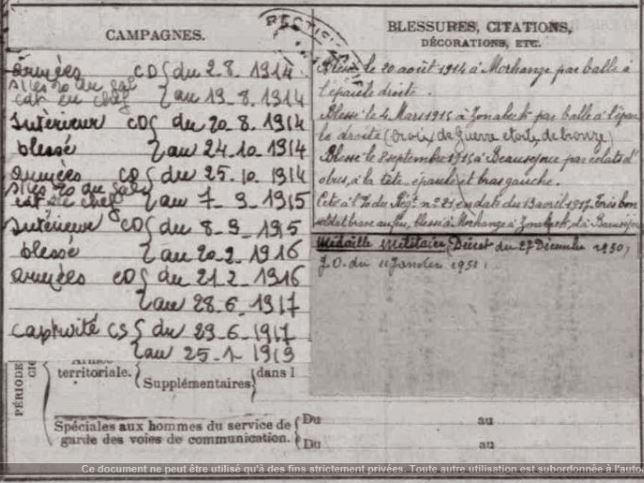 CAMPAGNES.
armées CD { du 2.8.1914
s/les 20 du Gal
cdt en chef { au 19.8.1914
Intérieur CD { du 20.8.1914
blessé { au 24.10.1914
armées CD { du 25.10.1914
{ au 7-9-1915
Intérieur CD { du 8-9-1915
blessé { au 20.2-1916
armées CD { du 21.2-1916
{ au 28.6-1917
captivité CS { du 29.6-1917
{ au 25-1-1919
BLESSURES, CITATIONS,
DÉCORATIONS, ETC.
Blessé le 20 août 1914 à Morhange par balle à
l'épaule droite.
Blessé le 4 Mars 1915 à Zonebeck par balle à l'épau
le droite (Croix de Guerre etoile de bronze)
Blessé le 8 septembre 1915 à Beausejour par éclats d'
obus, à la tête, épaule et bras gauche.
Cité à l'o. du Rgt n° 21 en date du 13 avril 1917. Très bon
soldat brave au feu, blessé à Morhange à Zonebeck, et à Beausejour
Médaille Militaire (Décret du 27 Décembre 1950)
J.O. du 11 Janvier 1951.
PÉRIODE
territoriale. { Supplémentaires { dans l
Spéciales aux hommes du service de { Du au
garde des voies de communication. { Du au
Ce document ne peut être utilisé qu'à des fins strictement privées. Toute autre utilisation est subordonnée à l'auto